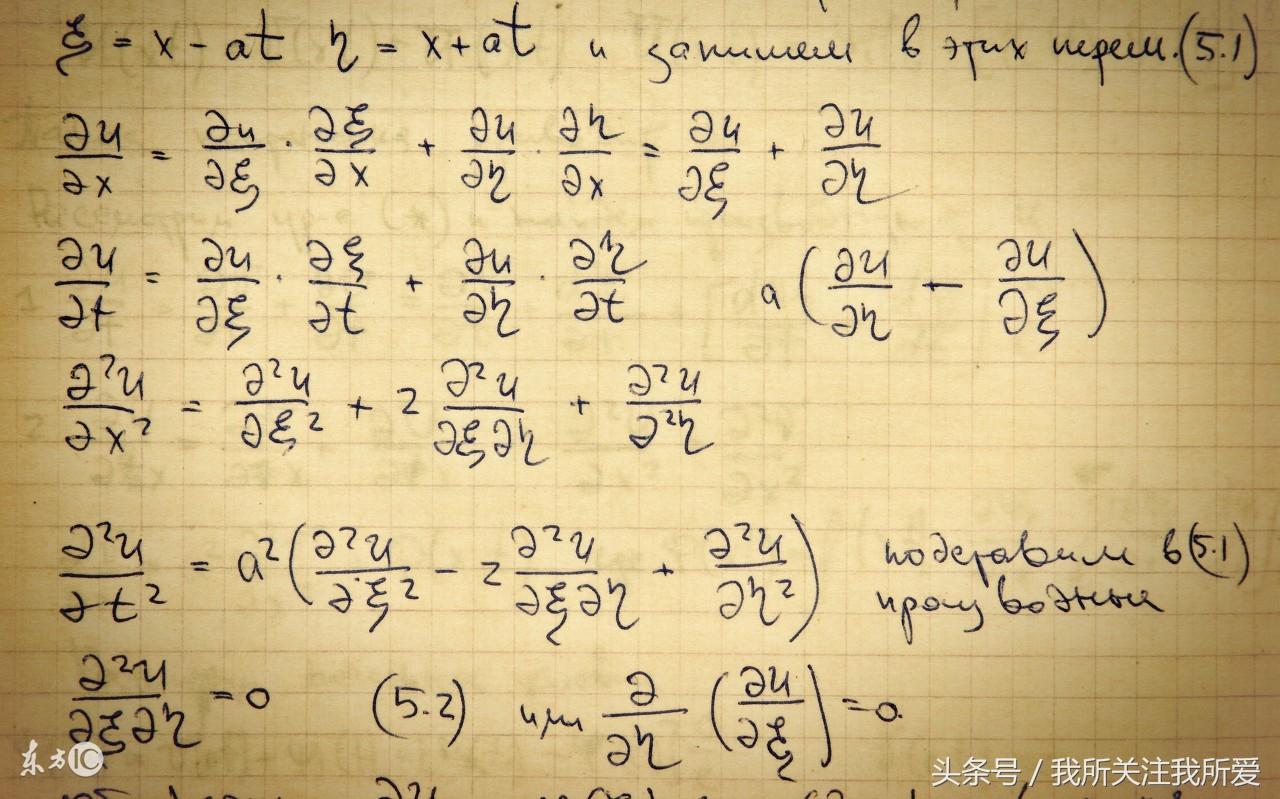 ξ = x - at η = x + at и запишем в этих перем. (5.1)
∂u/∂x = ∂u/∂ξ · ∂ξ/∂x + ∂u/∂η · ∂η/∂x = ∂u/∂ξ + ∂u/∂η
∂u/∂t = ∂u/∂ξ · ∂ξ/∂t + ∂u/∂η · ∂η/∂t a(∂u/∂η - ∂u/∂ξ)
∂²u/∂x² = ∂²u/∂ξ² + 2 ∂²u/∂ξ∂η + ∂²u/∂²η
∂²u/∂t² = a²(∂²u/∂ξ² - 2 ∂²u/∂ξ∂η + ∂²u/∂η²) подставим в (5.1)
производные
∂²u/∂ξ∂η = 0 (5.2) или ∂/∂η (∂u/∂ξ) = 0.
东方IC
头条号 / 我所关注我所爱